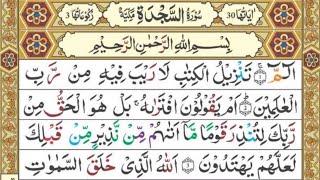 اٰیَاتُهَا 30 سُوْرَةُ السَّجْدَةِ مَكِّيَّةٌ رُكُوْعَاتُهَا 3
بِسْمِ اللّٰهِ الرَّحْمٰنِ الرَّحِيْمِ
الٓمّٓ ۚ﴿۱﴾ تَنْزِيْلُ الْكِتٰبِ لَا رَيْبَ فِيْهِ مِنْ رَّبِّ
الْعٰلَمِيْنَ ؕ﴿۲﴾ اَمْ يَقُوْلُوْنَ افْتَرٰىهُ ۚ بَلْ هُوَ الْحَقُّ مِنْ
رَّبِّكَ لِتُنْذِرَ قَوْمًا مَّاۤ اَتٰىهُمْ مِّنْ نَّذِيْرٍ مِّنْ قَبْلِكَ
لَعَلَّهُمْ يَهْتَدُوْنَ ﴿۳﴾ اَللّٰهُ الَّذِيْ خَلَقَ السَّمٰوٰتِ